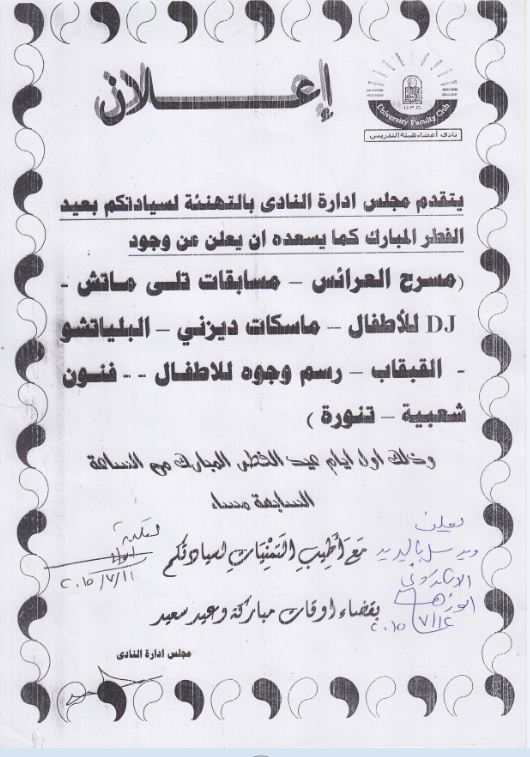 إعـــلان
University Faculty Club
U.F.C.
نادى أعضاء هيئة التدريس
يتقدم مجلس ادارة النادى بالتهنئة لسيادتكم بعيد
الفطر المبارك كما يسعده ان يعلن عن وجود
(مسرح العرائس – مسابقات تلى ماتش -
DJ للأطفال – ماسكات ديزني – البلياتشو
- القبقاب – رسم وجوه للاطفال - - فنون
شعبية – تنورة )
وذلك اول ايام عيد الفطر المبارك من الساعة
السابعة مساء
مع أطيب التمنيات لسيادتكم
بقضاء اوقات مباركة وعيد سعيد
يعلن
ويرسل بالبريد
الالكتروني
٢٠١٥/٧/١٤
٢٠١٥/٧/١١
مجلس ادارة النادى